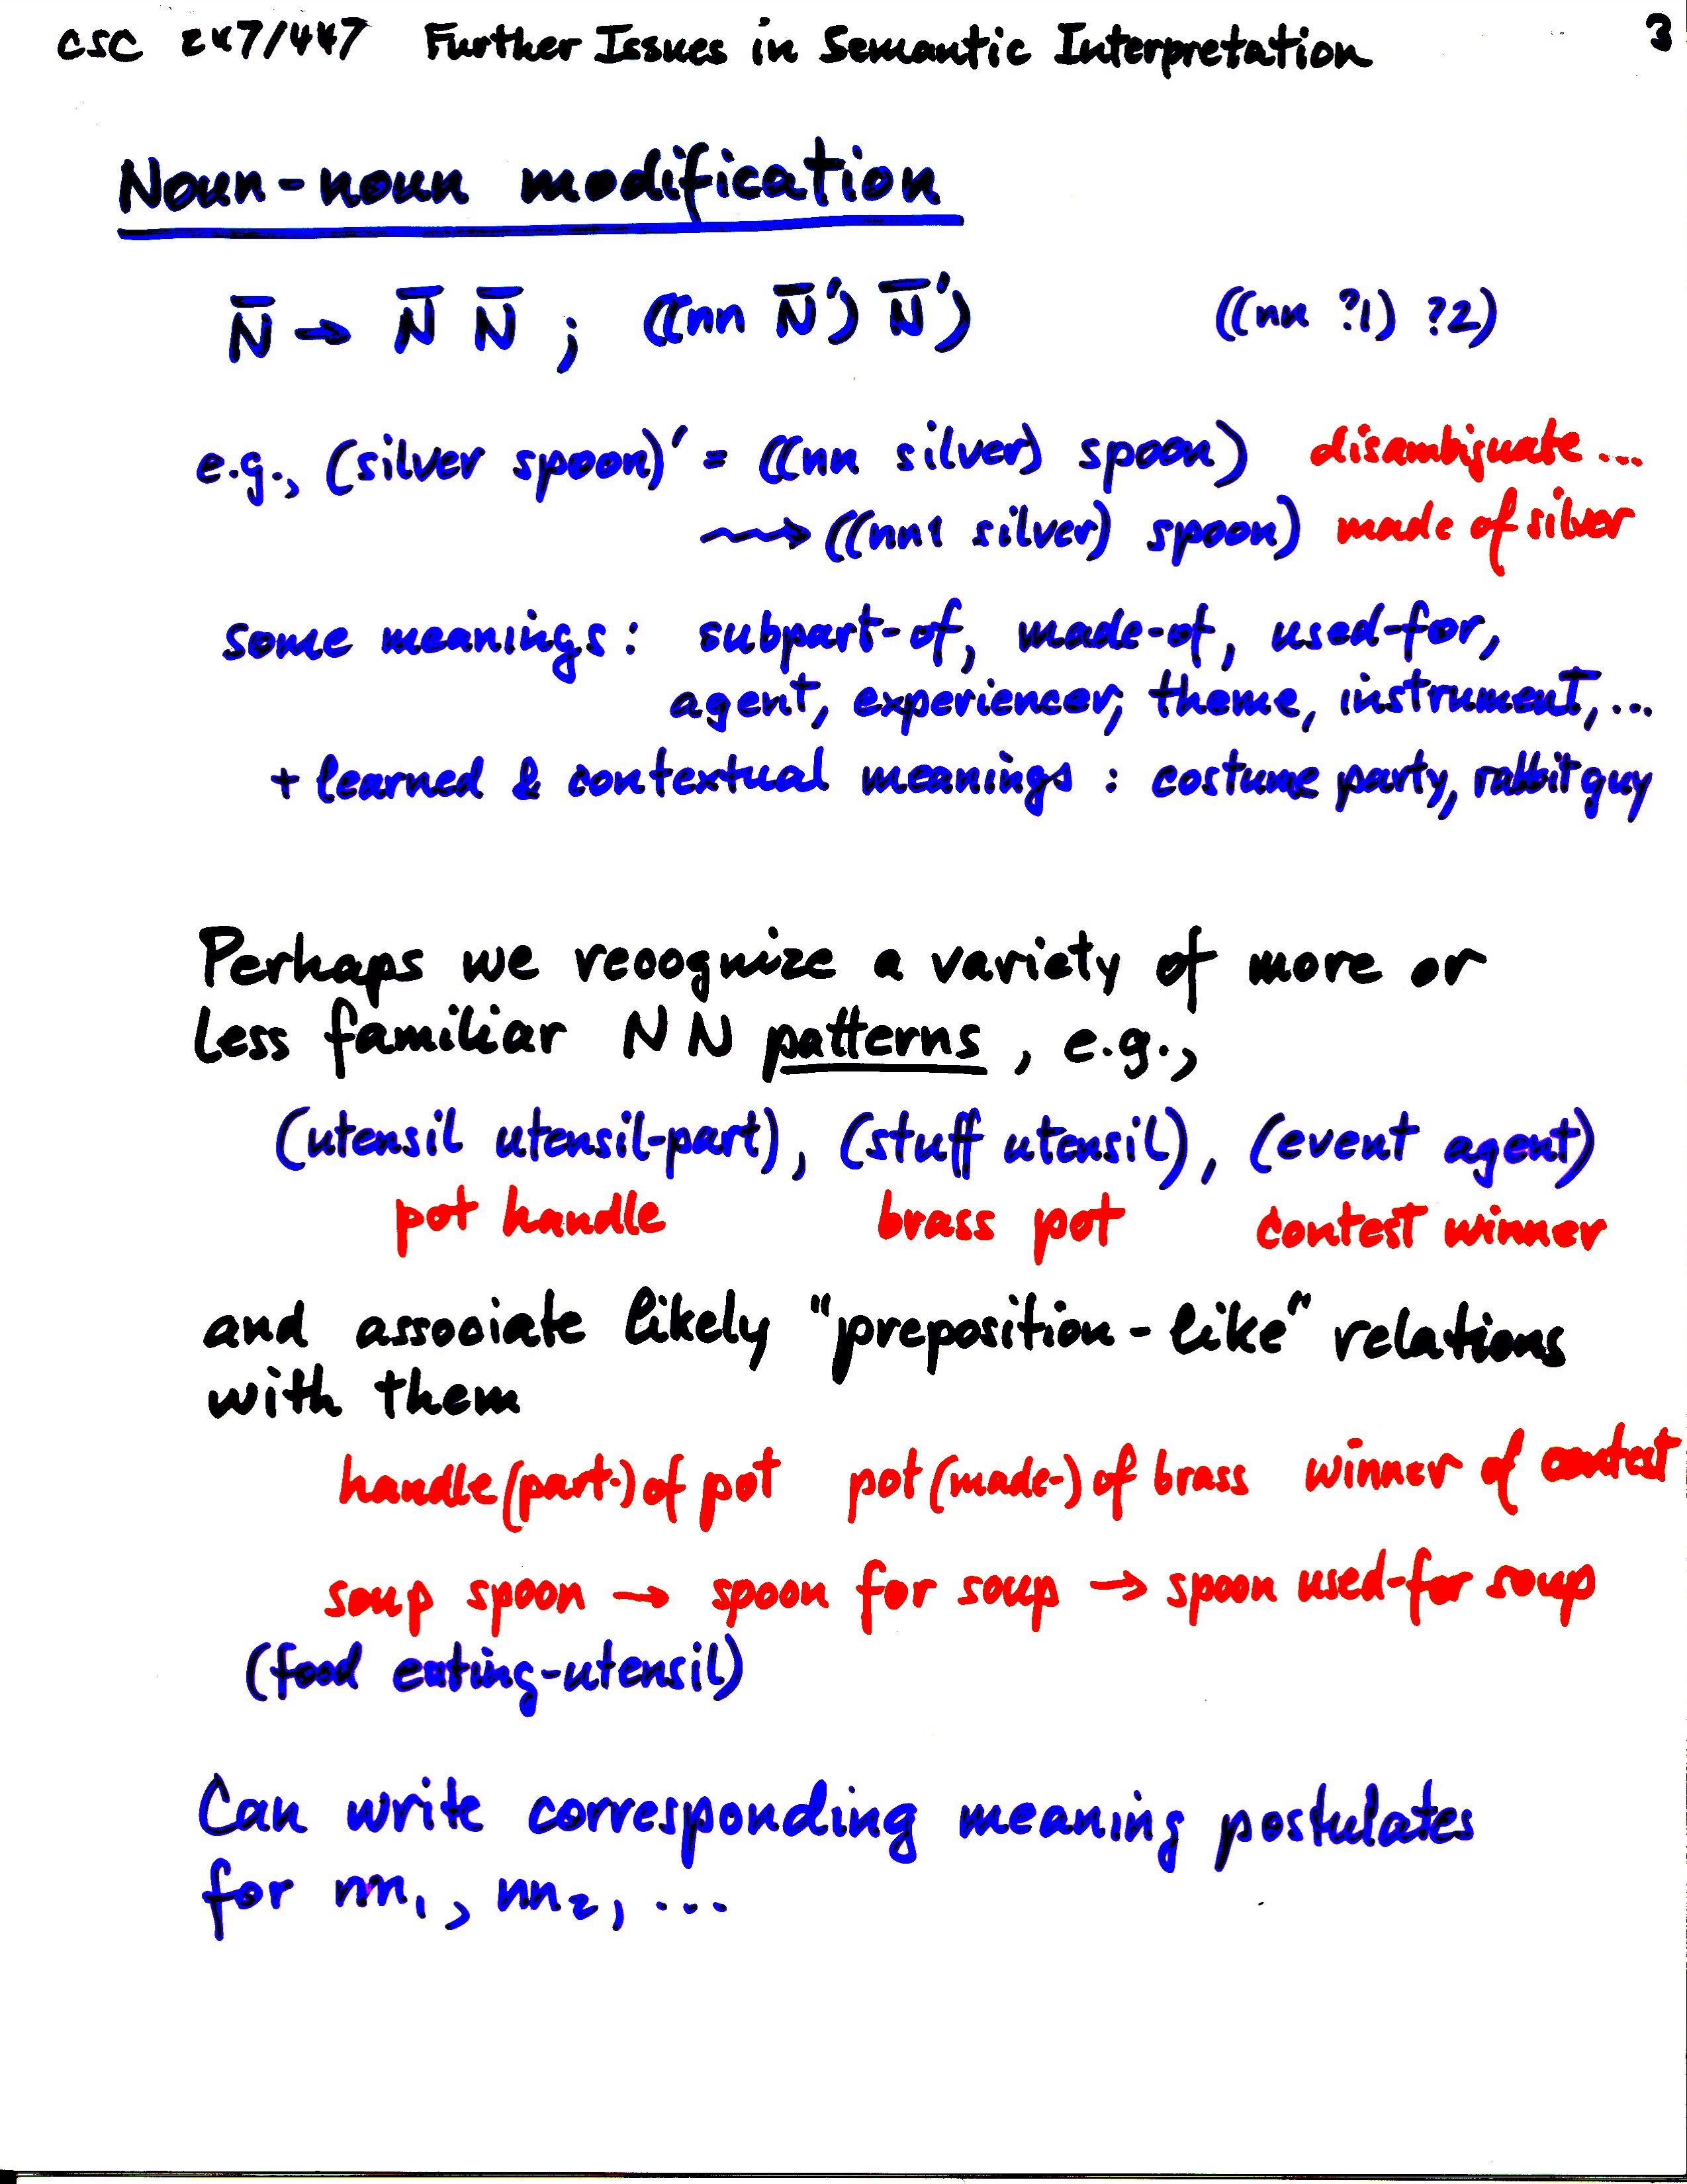 CSC 247/447 Further Issues in Semantic Interpretation 3
Noun-noun modification
N̄ → N̄ N̄ ; ((nn N̄′) N̄′) ((nn ?1) ?2)
e.g., (silver spoon)′ = ((nn silver) spoon) disambiguate ...
⇝ ((nn1 silver) spoon) made of silver
some meanings: subpart-of, made-of, used-for,
agent, experiencer, theme, instrument, ...
+ learned & contextual meanings : costume party, rabbit guy
Perhaps we recognize a variety of more or
less familiar N N patterns, e.g.,
(utensil utensil-part), (stuff utensil), (event agent)
pot handle brass pot contest winner
and associate likely "preposition-like" relations
with them
handle (part-) of pot pot (made-) of brass winner of contest
soup spoon → spoon for soup → spoon used-for soup
(food eating-utensil)
Can write corresponding meaning postulates
for nn₁, nn₂, ...